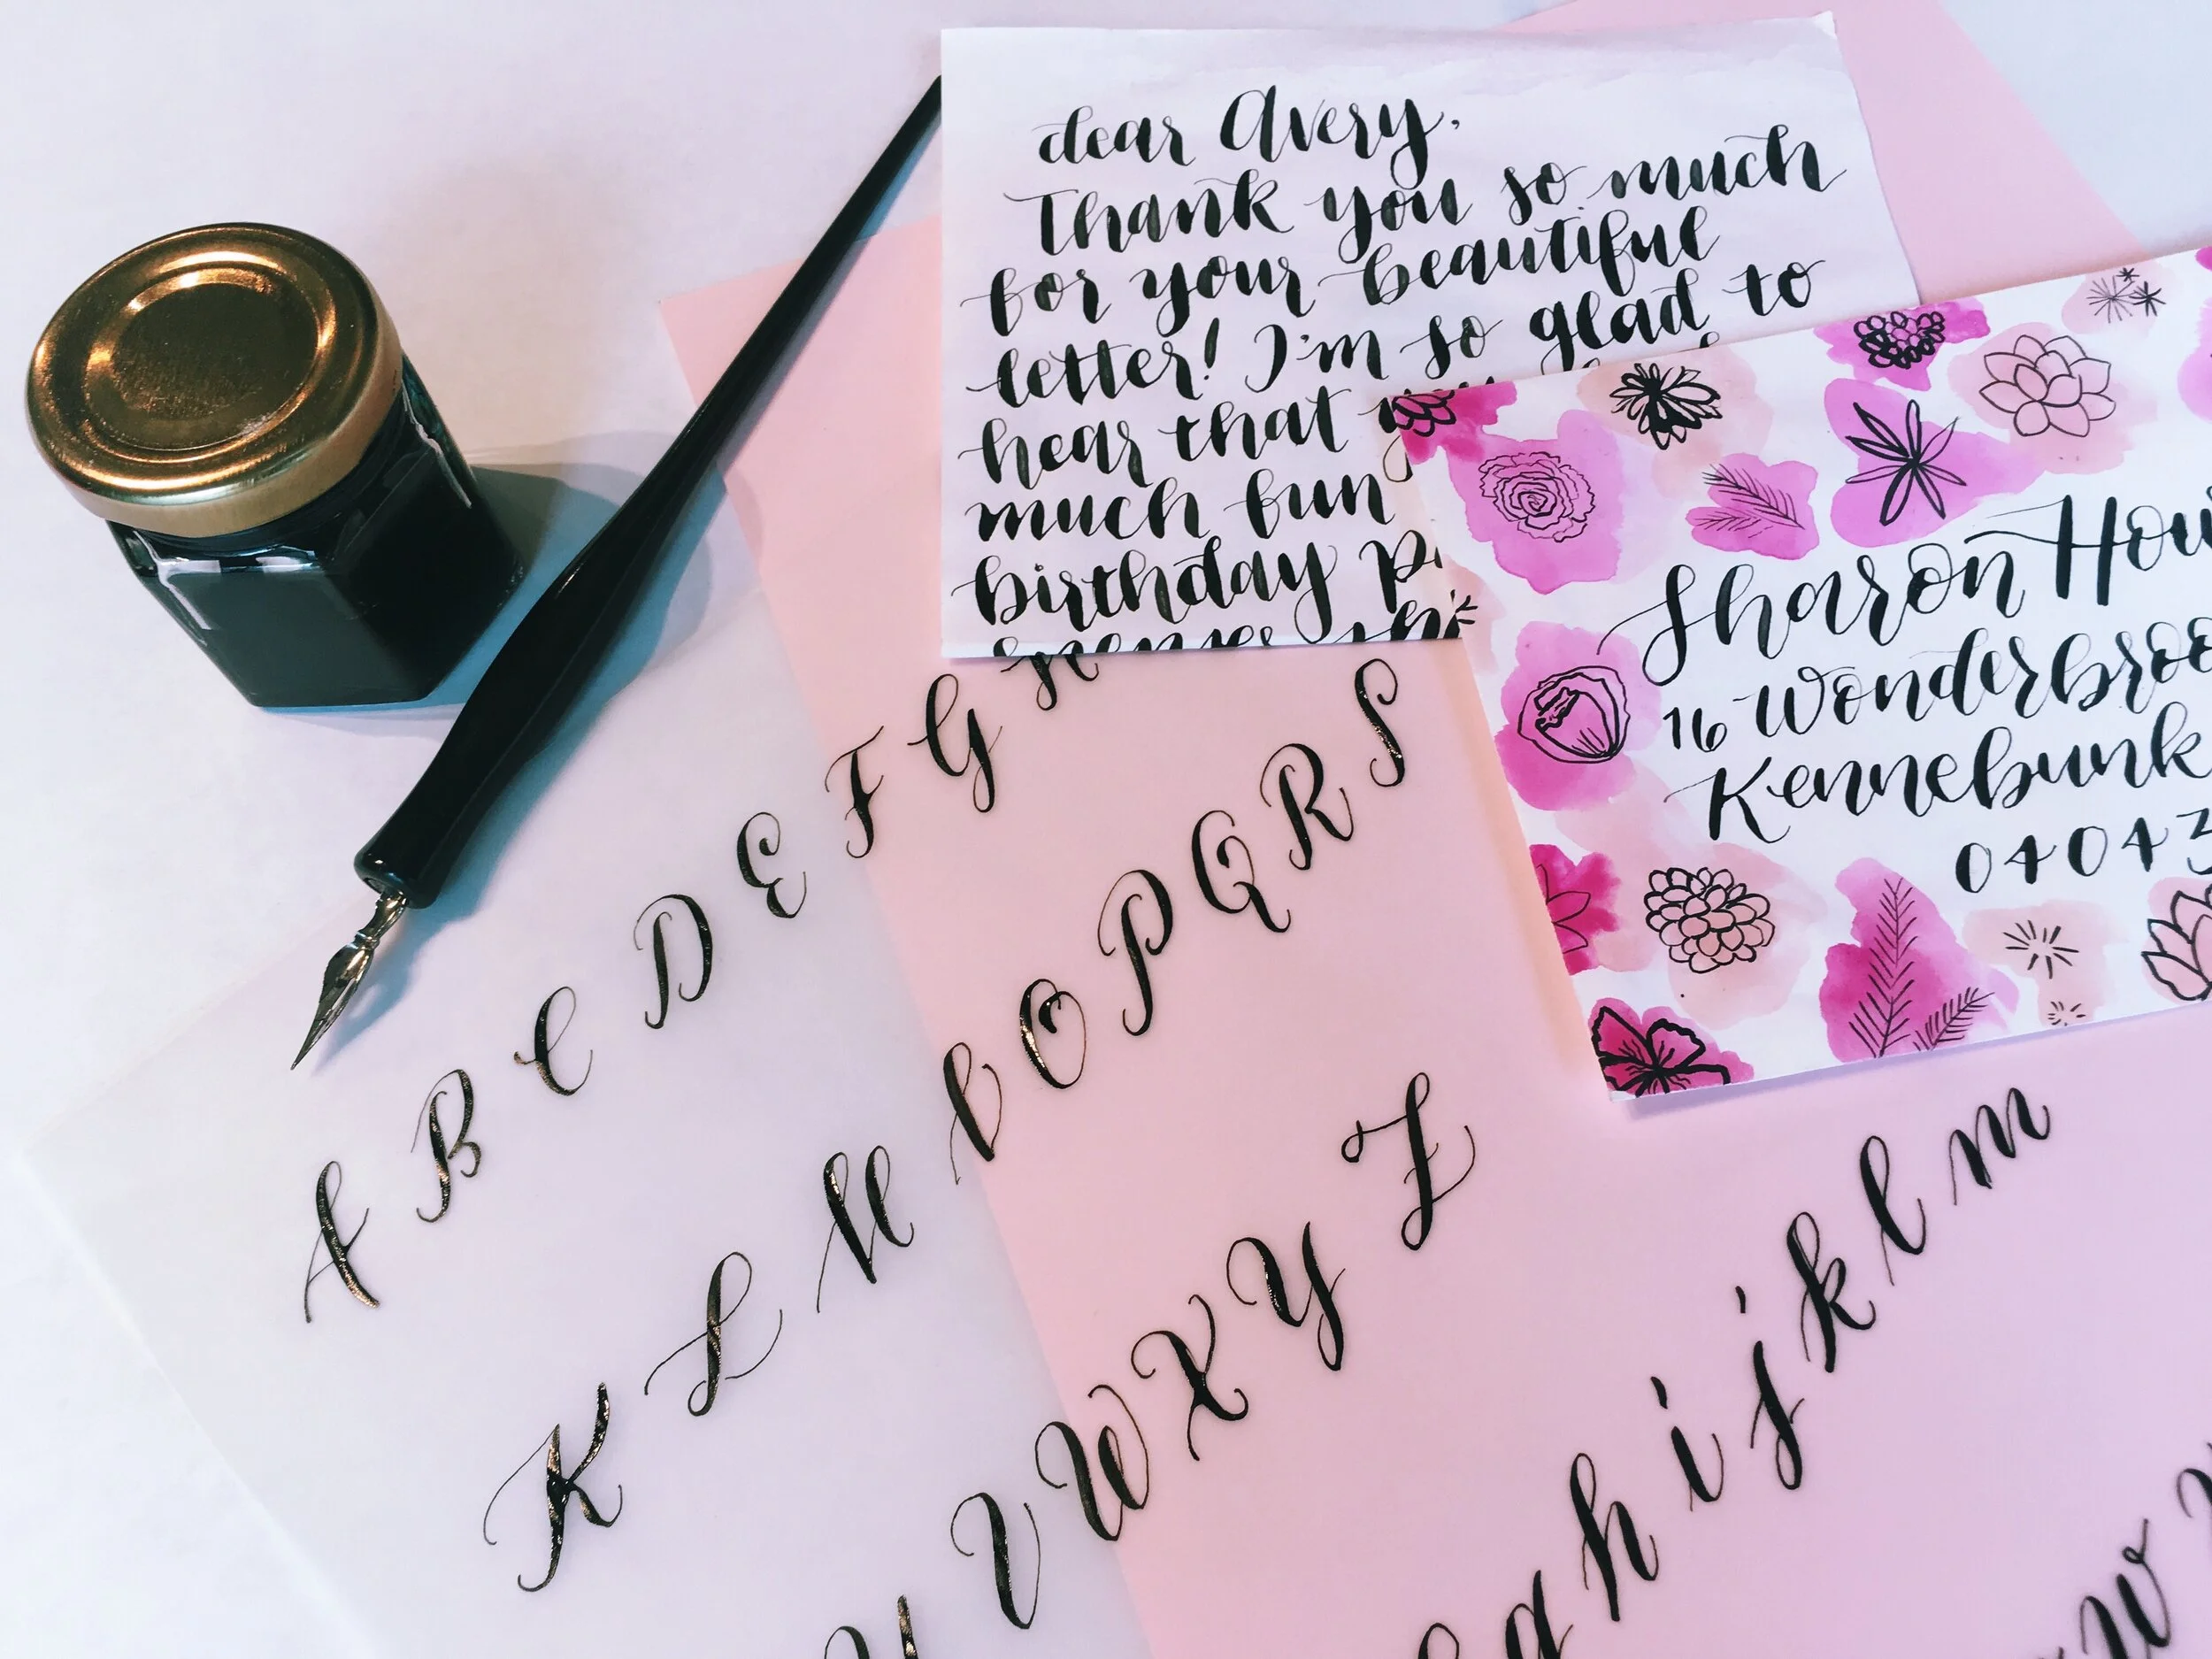 dear Avery,
Thank you so much
for your beautiful
letter! I'm so glad to
hear that
much fun
birthday
Sharon
16
Kennebunk
04043
A B C D E F G
K L M N O P Q R S
U V W X Y Z
g h i j k l m
w